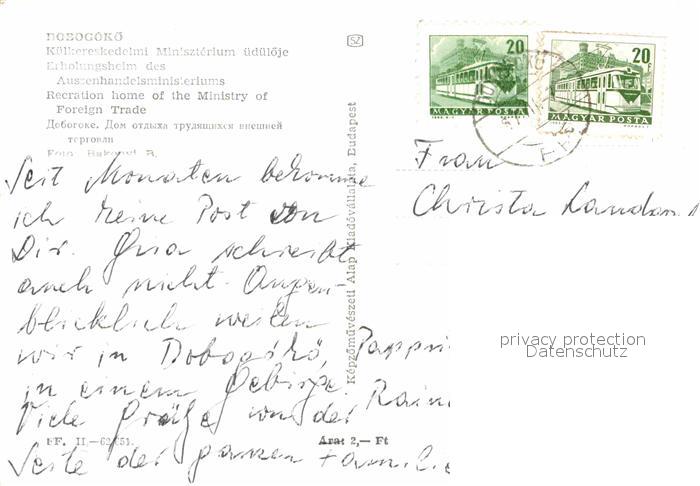 DOBOGÓKŐ
Külkereskedelmi Minisztérium üdülője
Erholungsheim des
Aussenhandelsministeriums
Recration home of the Ministry of
Foreign Trade
Добогоке. Дом отдыха трудящихся внешней
торговли
Foto: Bakonyi B.
SZ
20
MAGYAR POSTA
20 F
MAGYAR POSTA
Képzőművészeti Alap Kiadóvállalata, Budapest
Seit Monaten bekomme
ich keine Post von
Dir. Gusa schreibt
auch nicht. Augen-
blicklich weilen
wir in Dobogókő,
in einem Gebirge.
Viele Grüße von der
Seite der ganzen Famil
Frau
Christa Landan
privacy protection
Datenschutz
FF. II.—62/651.
Ára: 2,— Ft